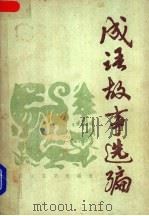 成语故事选编